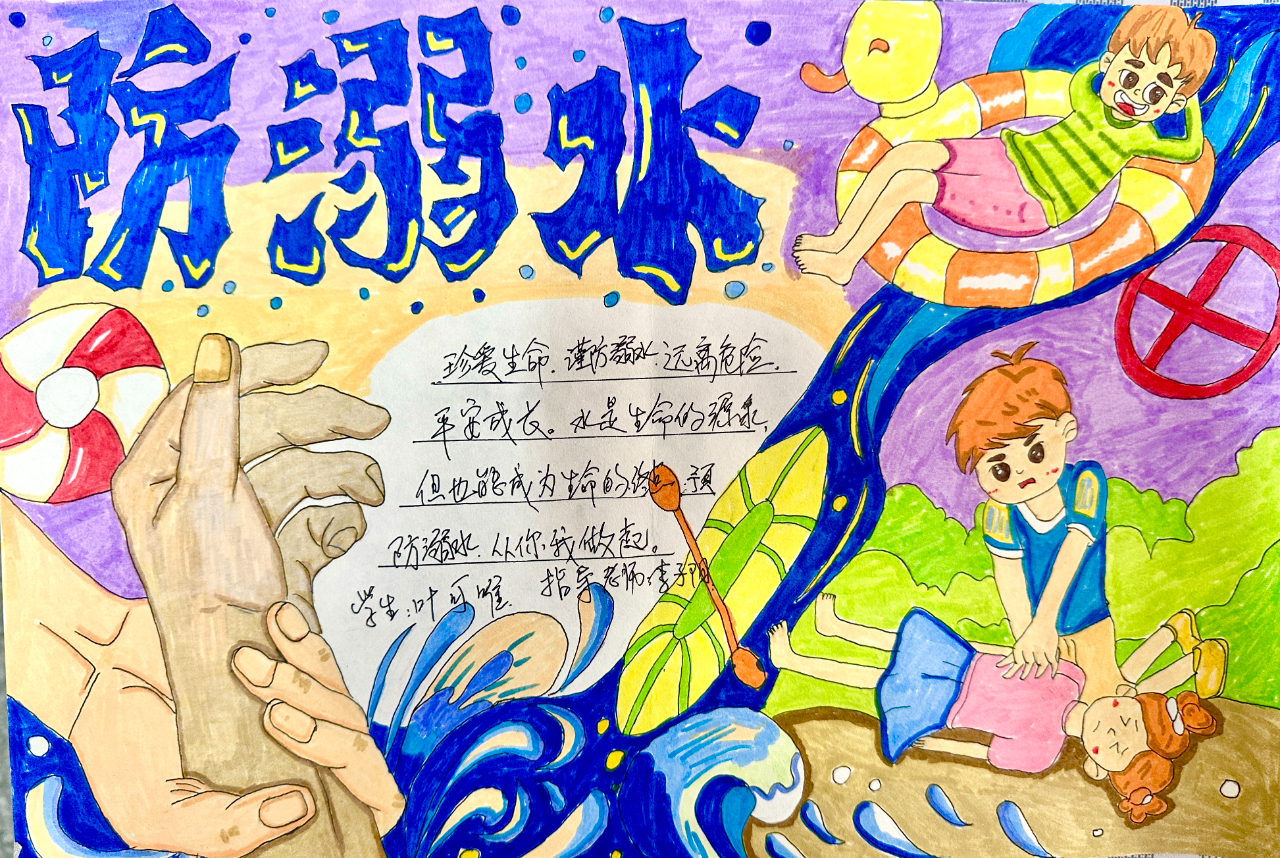 防溺水
珍爱生命.谨防溺水.远离危险.
平安成长。水是生命的源泉,
但也能成为生命的终点.预
防溺水.从你我做起。
学生:叶可唯. 指导老师:李子